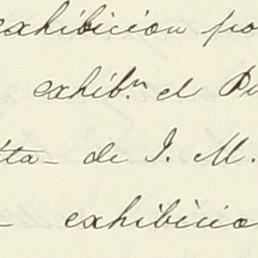 exhibicion po
exhib.n el Pu
tta- de J. M.
- exhibicio